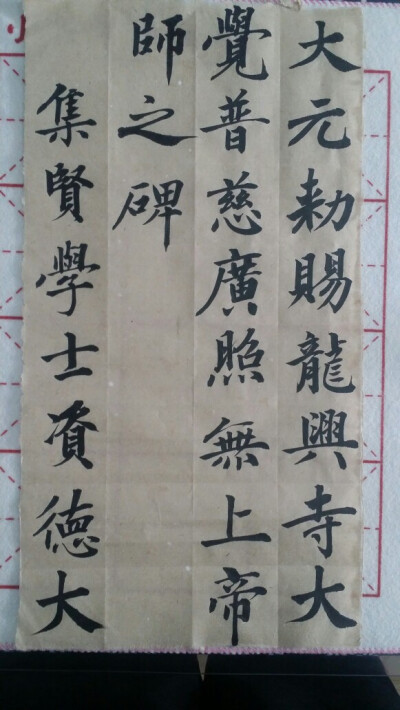 大元敕賜龍興寺大
覺普慈廣照無上帝
師之碑
集賢學士資德大